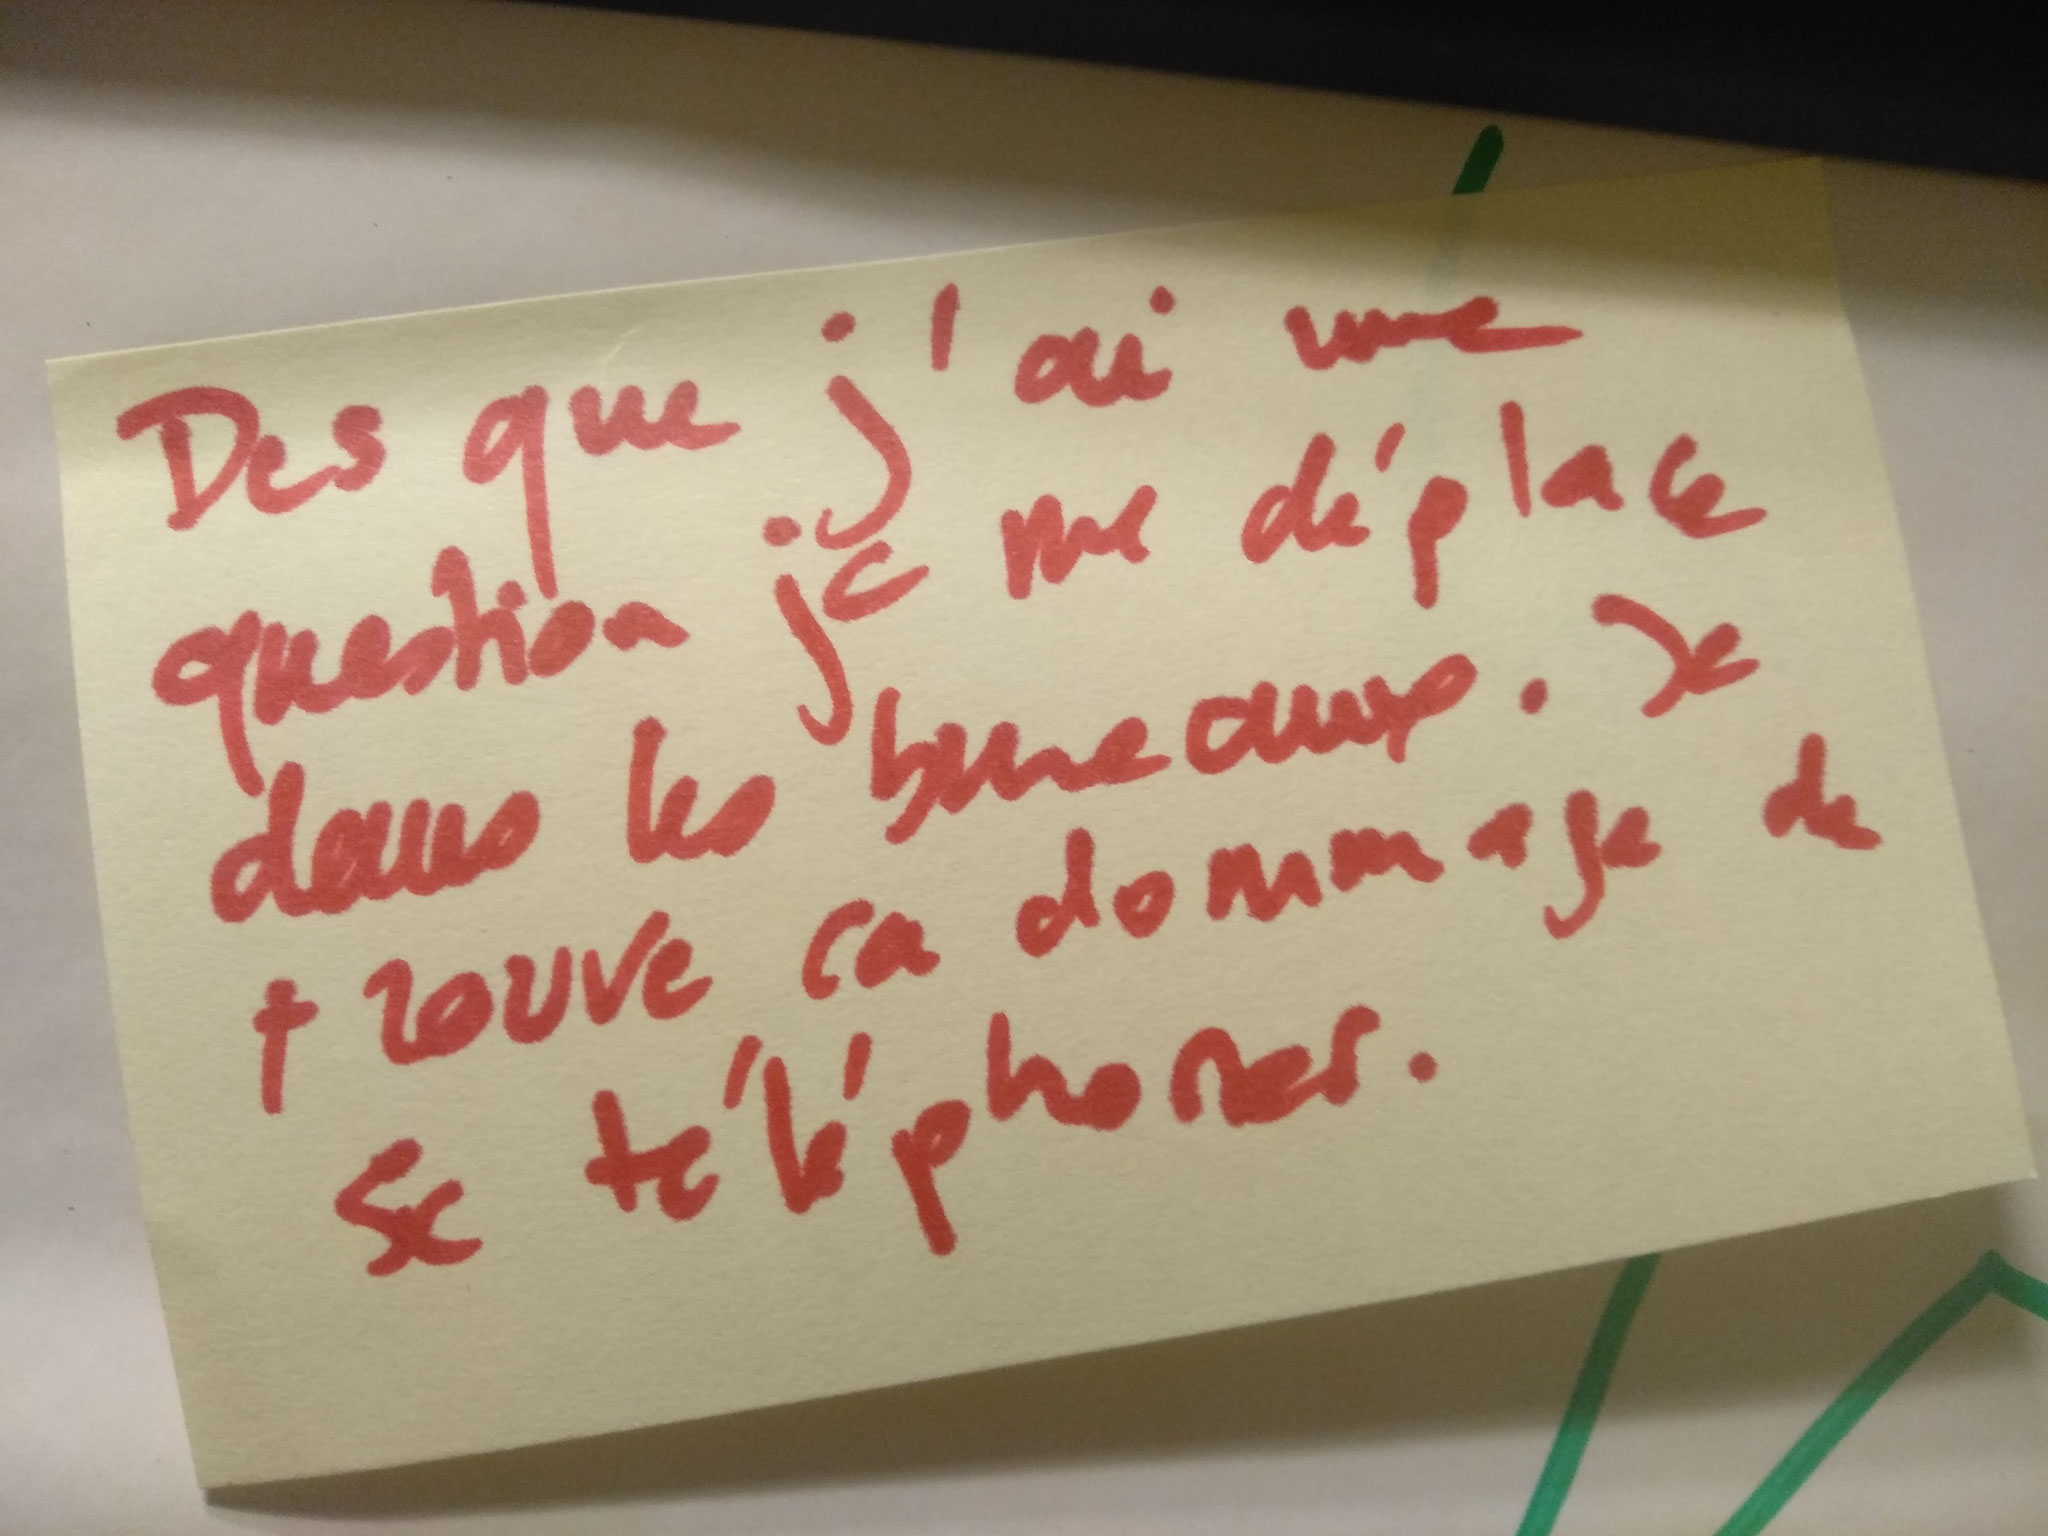 Des que j'ai une
question je me déplace
dans les bureaux. Je
trouve ca dommage de
se téléphoner.